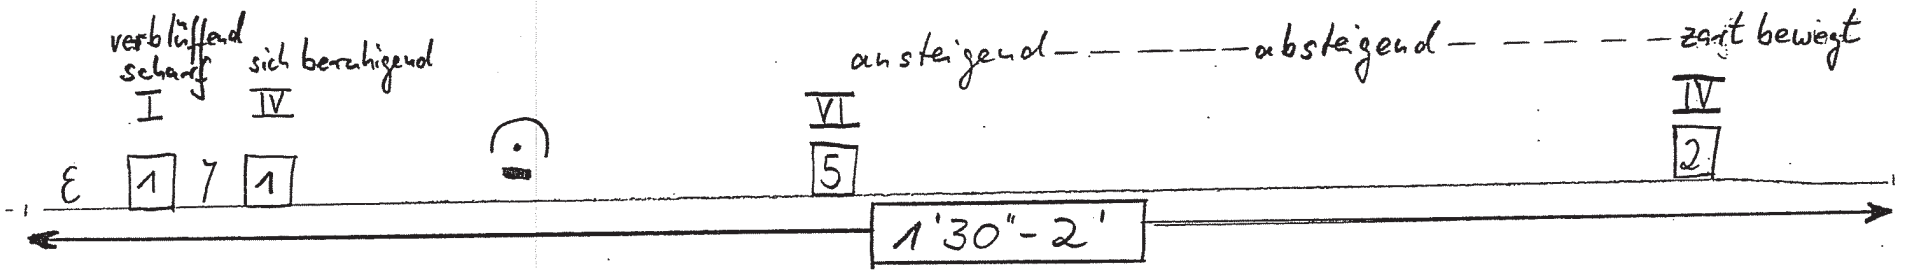 verblüffend
scharf sich beruhigend ansteigend — — — — absteigend — — — — zart bewegt
I IV VI IV
1 1 5 2
1'30" - 2'